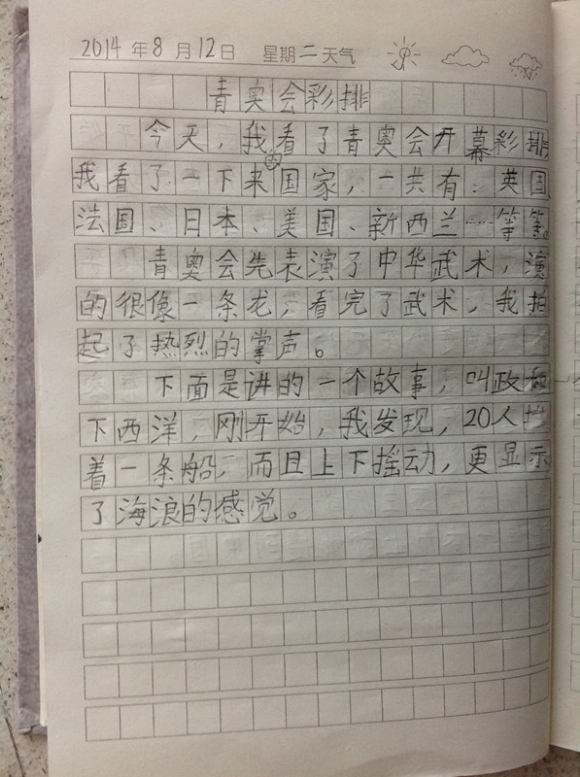 2014年8月12日 星期二天气
青奥会彩排
今天，我看了青奥会开幕彩排
我看了一下来的国家，一共有：英国
法国、日本、美国、新西兰……等等。
青奥会先表演了中华武术，演
的很像一条龙，看完了武术，我拍
起了热烈的掌声。
下面是讲的一个故事，叫政和
下西洋，刚开始，我发现，20人
着一条船，而且上下摇动，更显示
了海浪的感觉。